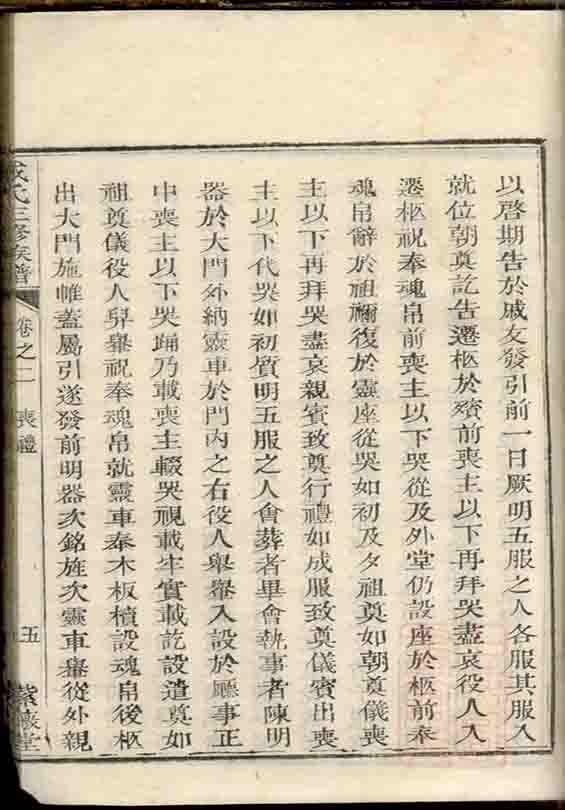 以啓期告於戚友發引前一日厥明五服之人各服其服入
就位朝奠訖告遷柩於殯前喪主以下再拜哭盡哀役人入
遷柩祝奉魂帛前喪主以下哭從及外堂仍設座於柩前奉
魂帛辭於祖禰復於靈座從哭如初及夕祖奠如朝奠儀喪
主以下再拜哭盡哀親賓致奠行禮如成服致奠儀賓出喪
主以下代哭如初質明五服之人會葬者畢會執事者陳明
器於大門外納靈車於門內之右役人舉轝入設於廳事正
中喪主以下哭踊乃載喪主輟哭視載牢實載訖設遣奠如
祖奠儀役人舁轝祝奉魂帛就靈車奉木板櫝設魂帛後柩
出大門施帷蓋屬引遂發前明器次銘旌次靈車轝從外親
氏三修族譜
卷之二
喪禮
五
堂